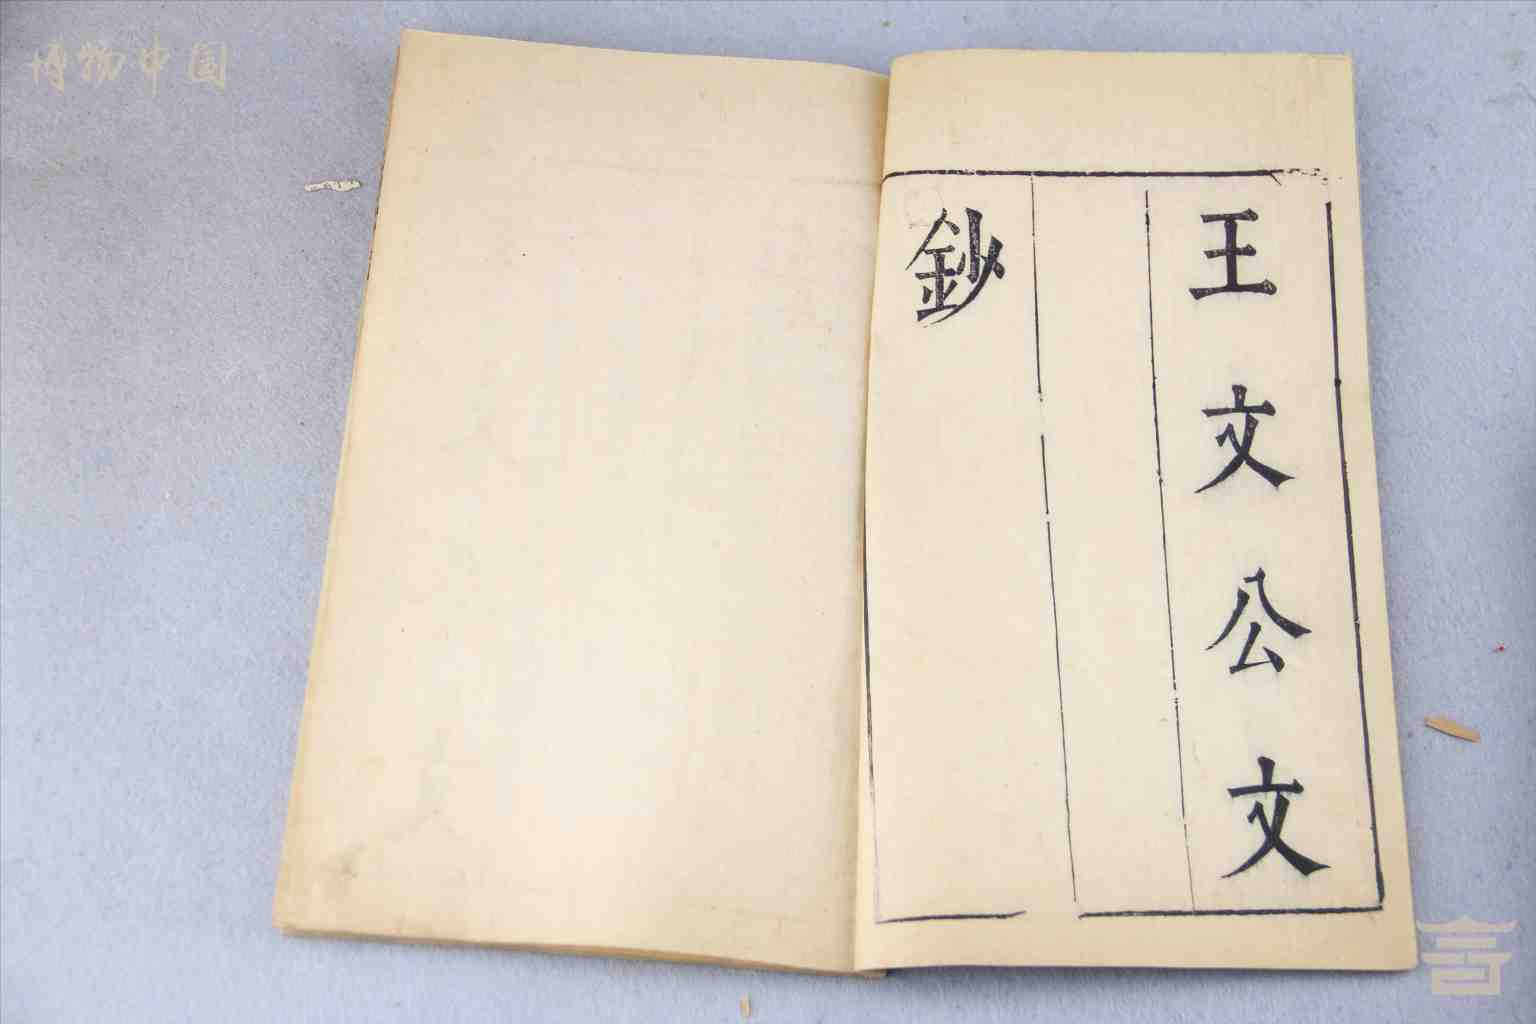 博物中国
王文公文
鈔